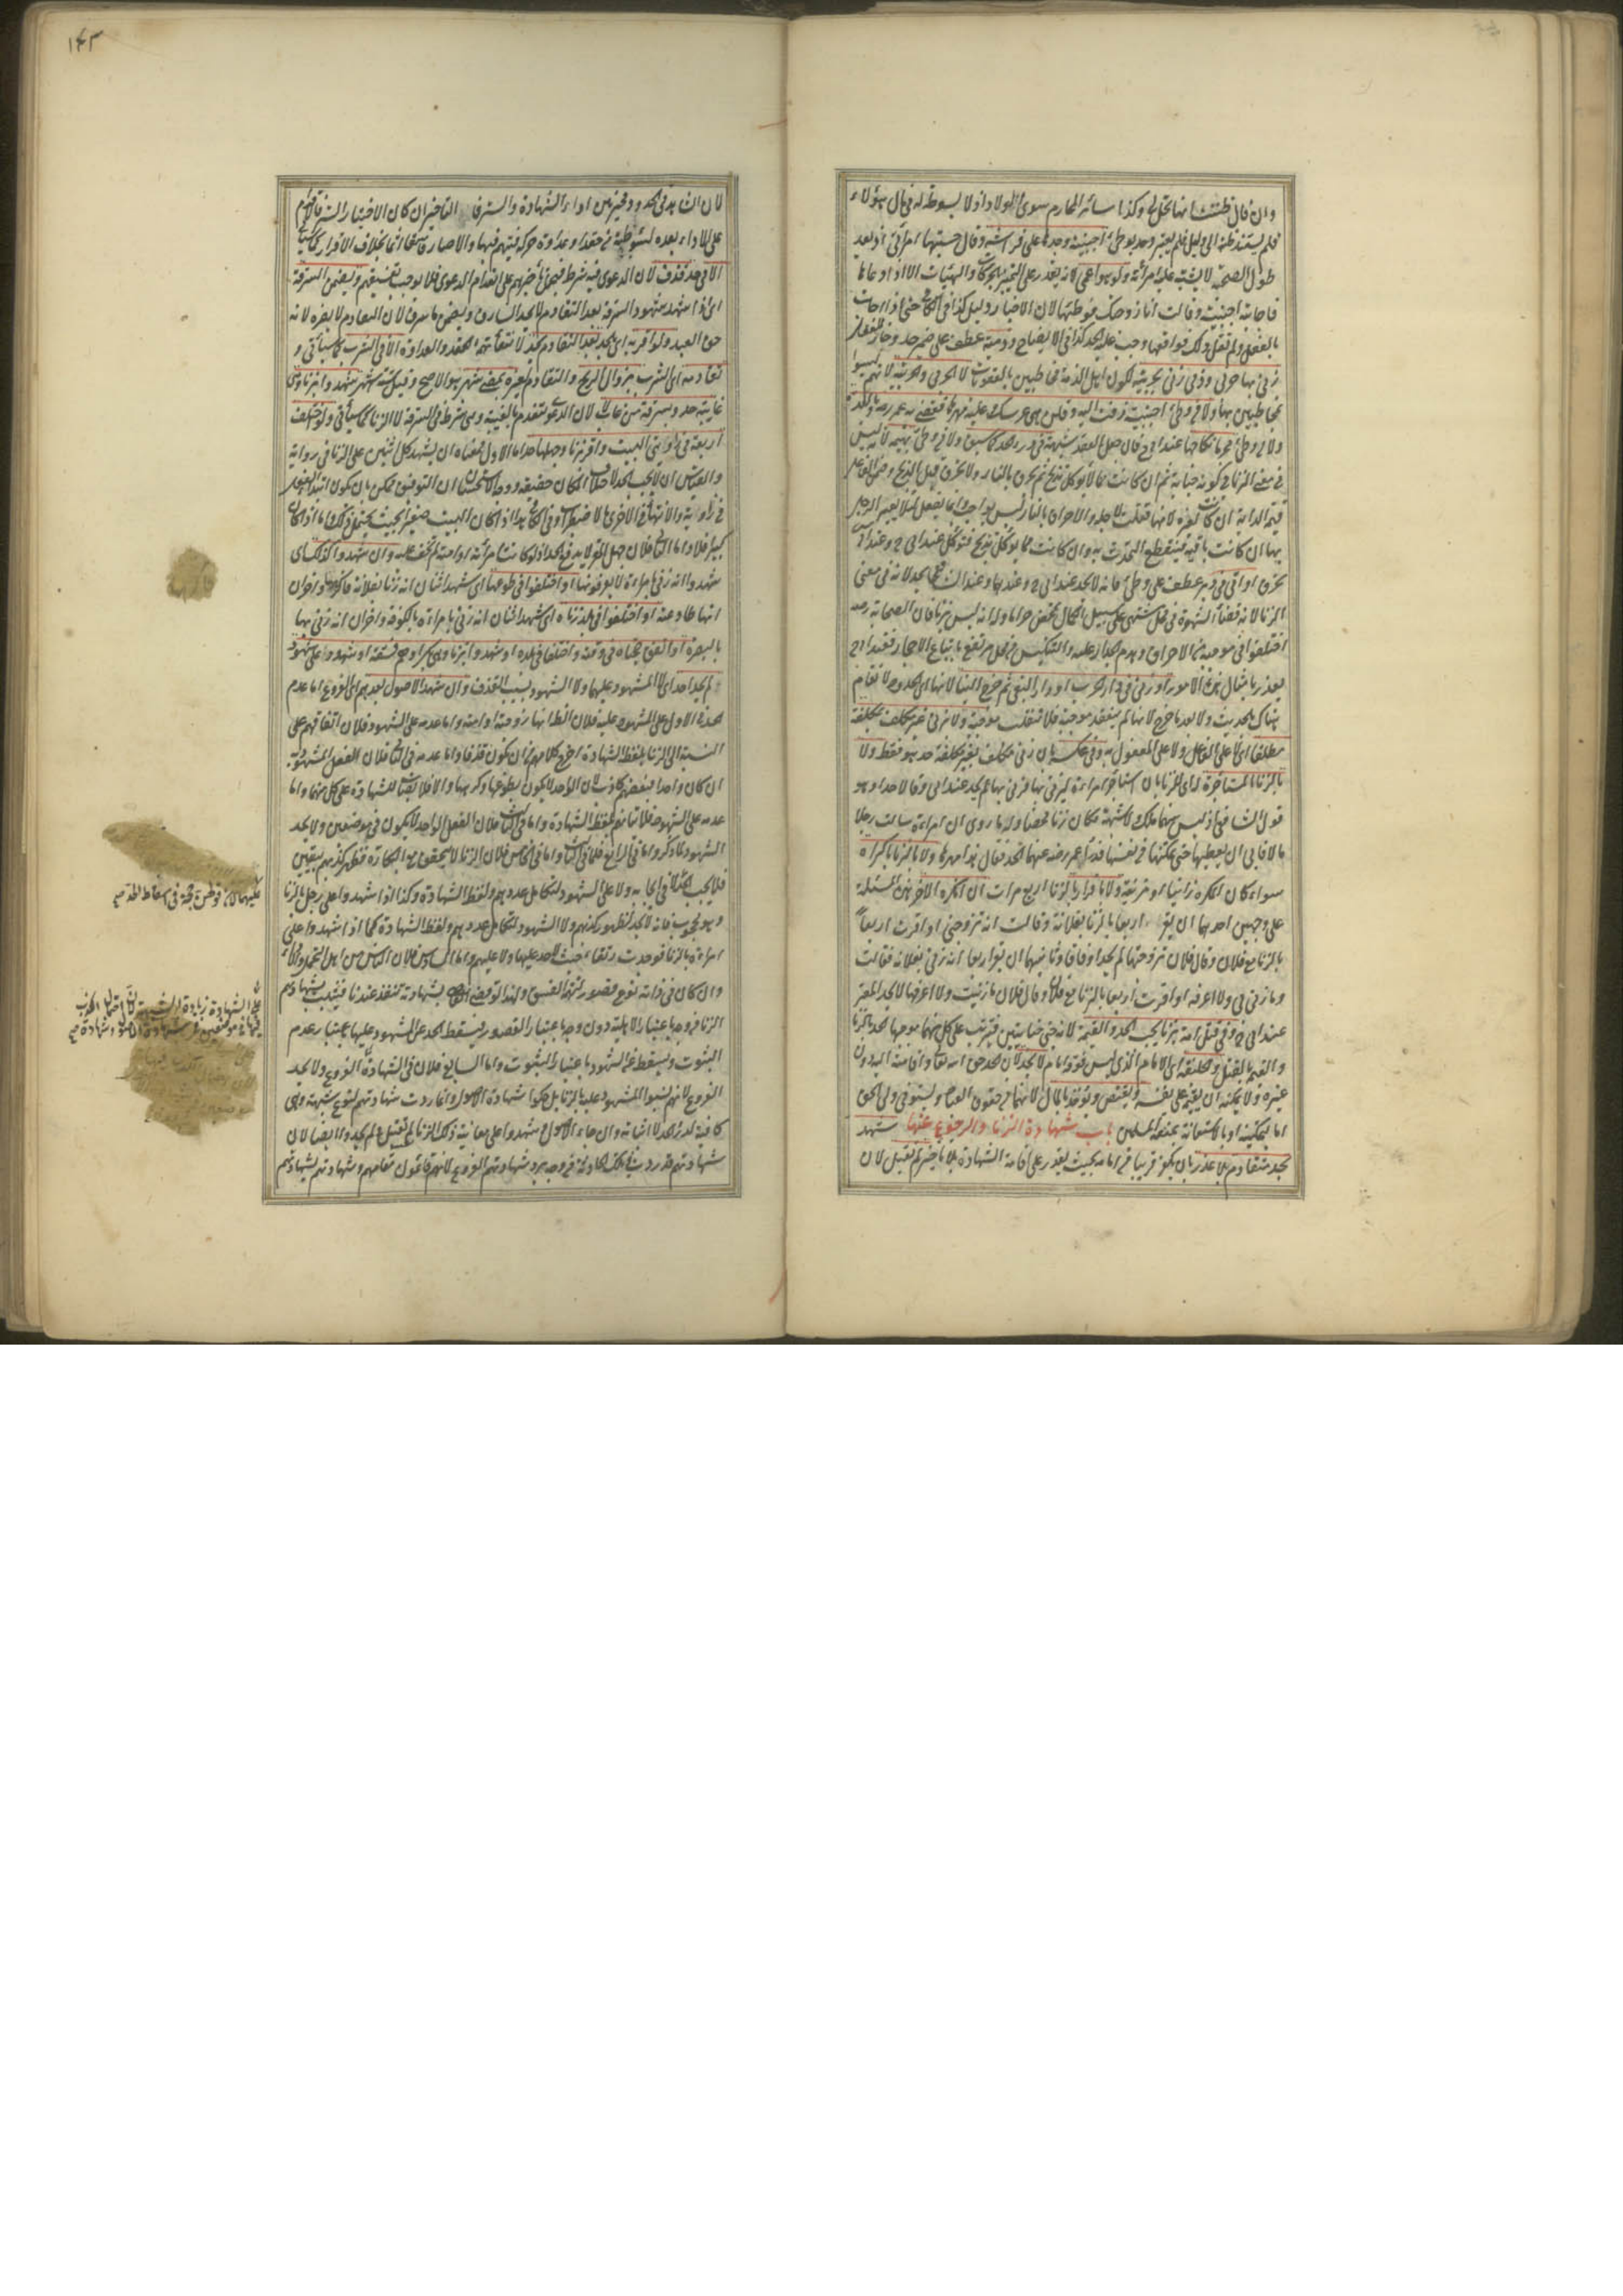 وان قال ظننت انها تحل لي وكذا سائر المحارم سوى الولاد اذ لا بسوطة له في مال هؤلاء
فلم يستند ظنه الى دليل فلم يعتبر وحد بوطئ اجنبية وجدها على فراشه وقال حسبتها امرأتي اذ بعد
طول الصحبة لا يشتبه عليه امرأته ولو هو اعمى لانه يقدر على التمييز بالحركات والهيئات الا اذا دعاها
فاجابته اجنبية وقالت انا زوجتك فوطئها لان الاخبار دليل كذا في الكافي حتى اذا اجابت
بالفعل ولم تقل ذلك فواقعها وجب عليه الحد كذا في الايضاح وذمية عطف على ضمير حد وجاز للفصل
زنى بها حربي وذمي زنى بحربية لكون اهل الذمة مخاطبين بالعقوبات لا الحربي والحربية لانهم ليسوا
مخاطبين بها ولا في وطئ اجنبية زفت اليه وقلن هي عرسك وعليه مهرها قضى به عمر رضه وبالعدة
ولا في وطئ محرما نكاحها عند ابي ح فان جعل العقد شبهة في درء الحد كما سبق ولا في وطئ بهيمة لانه ليس
في معنى الزنا في كونه جناية ثم ان كانت مما لا يؤكل تذبح ثم تحرق بالنار ولا تحرق قبل الذبح وضمن الفاعل
قيمة الدابة ان كانت لغيره لانها قتلت لاجله والاحراق بالنار ليس بواجب وانما يفعل لئلا يعير الرجل
بها ان كانت باقية فينقطع التحدث به وان كانت مما يؤكل تذبح فتؤكل عند ابي ح وعند ابي س
تحرق او اتى في دبر عطف على وطئ فانه لا يحد عند ابي ح وعندهما وعند الشافعي يحد لانه في معنى
الزنا لانه قضاء الشهوة في محل مشتهى على سبيل الكمال تمحض حراما وله انه ليس بزنا فان الصحابة رضه
اختلفوا في موجبه من الاحراق وهدم الجدار عليه والتنكيس من محل مرتفع باتباع الاحجار فعند ابي ح
يعزر بامثال هذه الامور او زنى في دار الحرب او دار البغي ثم خرج الينا لانها اي الحدود لا تقام
هناك بالحديث ولا بعد ما خرج لانها لم ينعقد موجبة فلا تنقلب موجبة ولا بزنى غير مكلف بمكلفة
مطلقا اي لا على الفاعل ولا على المفعول به وفي عكسه بان زنى مكلف بغير مكلفة حد هو فقط ولا
بالزنا بالمستأجرة له اي للزنا بان استأجر امرأة ليزني بها فزنى بها لم يحد عند ابي ح وقالا حدا وهو
قول الشافعي اذ ليس بينهما ملك ولا شبهة فكان زنا محضا وله ما روى ان امرأة سألت رجلا
مالا فابى ان يعطيها حتى تمكنها في نفسها فدرأ عمر رضه عنهما الحد فقال هذا مهرها ولا بالزنا باكراه
سواء كان المكره زانيا او مزنية ولا باقرار بالزنا اربع مرات ان انكره الآخر هذه المسئلة
على وجهين احدهما ان يقر اربعا بالزنا بفلانة وقالت انه تزوجني او اقرت اربعا
بالزنا مع فلان وقال فلان تزوجتها لم يحدا وفاقا وثانيهما ان يقر اربعا انه زنى بفلانة فقالت
وما زنى بي ولا اعرفه او اقرت اربعا بالزنا مع فلان وقال فلان ما زنيت ولا اعرفها لا يحد المقر
عند ابي ح وفي قتل امة بزنا يجب الحد والقيمة لانه جنى جنايتين فترتب على كل منهما موجبها الحد بالزنا
والقيمة بالقتل والخليفة اي الامام الذي ليس فوقه امام لا يحد لان الحد حق الله تعالى واقامته اليه دون
غيره ولا يمكنه ان يقيم على نفسه ويقتص ويؤخذ بالمال لانهما من حقوق العباد ويستوفي ولي الحق
اما بتمكينه او بالاستعانة بمنعة المسلمين باب شهادة الزنا والرجوع عنها شهد
بحد متقادم بلا عذر بان يكون قريبا من امامه بحيث يقدر على اقامة الشهادة بلا تأخير لم تقبل لان
١٤٣
لان الشاهد في الحدود مخير بين اداء الشهادة والستر فالتأخير ان كان لاختيار الستر فالاقدام
على الاداء بعده لسوء ظنه في حقد او عداوة حركته فيتهم فيها والا صار فاسقا آثما بخلاف الاقرار كما سيأتي
الا في حد قذف لان الدعوى فيه شرط فيحمل تأخيرهم على انعدام الدعوى فلا يوجب تفسيقهم ويضمن السرقة
اي اذا شهد شهود السرقة بعد التقادم لا يحد السارق ويضمن ما سرق لان التقادم لا يضره لانه
حق العبد ولو اقر به اي بالحد بعد التقادم حد لانتفاء تهمة الحقد والعداوة الا في الشرب كما سيأتي و
تقادمه اي الشرب بزوال الريح والتقادم لغيره بمضي شهر هو الاصح وقيل ستة اشهر شهدوا بزنا وهي
غائبة حد وبسرقة من غائب لا لان الدعوى تنعدم بالغيبة وهي شرط في السرقة لا الزنا كما سيأتي ولو اختلف
اربعة في زاويتي البيت او اقر بزنا وجهلها حد اما الاول فمعناه ان يشهد كل اثنين على الزنا في زاوية
والقياس ان لا يجب الحد لاختلاف المكان حقيقة وجه الاستحسان ان التوفيق ممكن بان يكون ابتداء الفعل
في زاوية والانتهاء في الاخرى بالاضطراب وفي الكافي هذا اذا كان البيت صغيرا بحيث يحتمل ذلك واما اذا كان
كبيرا فلا واما الثاني فلان جهل المقر لا يدفع الحد اذ لو كانت امرأته او امته لم تخف عليه وان شهدوا كذلك اي
شهدوا انه زنى بامرأة لا يعرفونها او اختلفوا في طوعها اي شهد اثنان انه زنا بفلانة فاكرهها وآخران
انها طاوعته او اختلفوا في بلد زناه اي شهد اثنان انه زنى بامرأة بالكوفة وآخران انه زنى بها
بالبصرة او اتفق حجتاه في وقته واختلفا في بلده او شهدوا بزنا وهي بكر او هم فسقة او شهدوا على شهود
لم يحد احد اي لا المشهود عليهما ولا الشهود بسبب القذف وان شهد الاصول بعدهم اي الفروع اما عدم
الحد في الاول على المشهود عليه فلان الظاهر انها زوجته او امته واما عدمه على الشهود فلان اتفاقهم على
النسبة الى الزنا بلفظ الشهادة اخرج كلامهم من ان يكون قذفا واما عدمه في الثاني فلان الفعل المشهود به
ان كان واحدا فبعضهم كاذب لان الواحد لا يكون بطوعها وكرهها والا فلا نصاب للشهادة على كل منهما واما
عدمه على الشهود فلما تم لفظ الشهادة واما في الثالث فلان الفعل الواحد لا يكون في موضعين ولا يحد
الشهود لما ذكر واما في الرابع فلما في الثالث واما في الخامس فلان الزنا لا يتحقق مع البكارة فظهر كذبهم بيقين
فلا يجب الحد ولا على الشهود لتكامل عددهم ولفظ الشهادة وكذا اذا شهدوا على رجل بالزنا
وهو مجبوب فانه لا يحد لظهور كذبهم ولا الشهود لتكامل عددهم ولفظ الشهادة كما اذا شهدوا على
امرأة بالزنا فوجدت رتقاء حيث لا حد عليها ولا عليهم واما السادس فلان الفاسق من اهل التحمل والاداء
وان كان في ادائه نوع قصور لتهمة الفسق ولهذا لو قضى القاضي بشهادته تنفذ عندنا فيثبت بشهادتهم
الزنا من وجه باعتبار الاهلية دون وجه باعتبار القصور فيسقط الحد عن المشهود عليهما باعتبار عدم
الثبوت ويسقط عن الشهود باعتبار الثبوت واما السابع فلان في الشهادة الفروع ولا يحد
الفروع لانهم لم ينسبوا المشهود عليه بالزنا بل حكوا شهادة الاصول وانما ردت شهادتهم لنوع شبهة وهي
كافية لدرء الحد لا اثباته وان جاء الاصول وشهدوا على معاينة ذلك الزنا لم تقبل ولم يحدوا ايضا لان
شهادتهم قد ردت في تلك الحادثة من وجه برد شهادتهم الفروع لانهم قائمون مقامهم وشهادتهم كشهادتهم